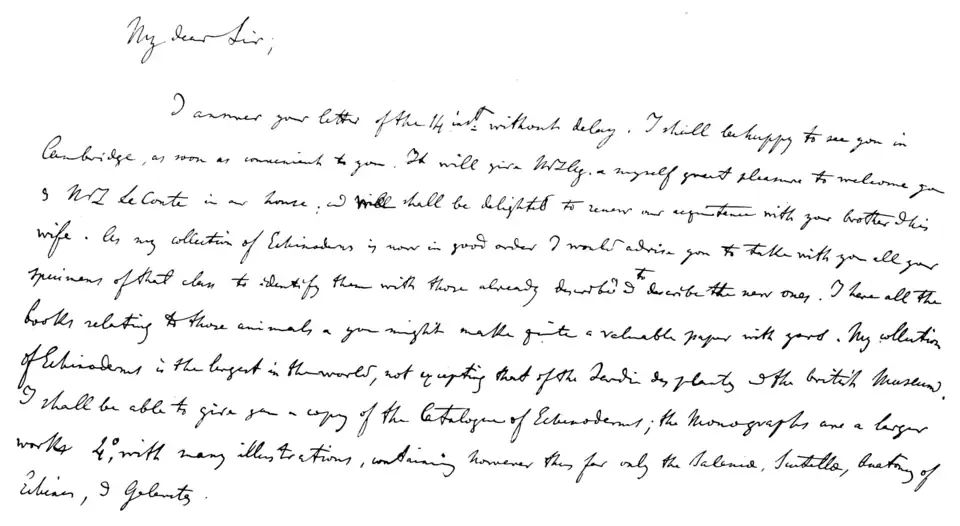 My dear Sir;
I answer your letter of the 14 inst without delay. I shall be happy to see you in
Cambridge, as soon as convenient to you. It will give Mrs Ag. a myself great pleasure to welcome you
& Mrs LeConte in our house; and will shall be delighted to renew our acquintence with your brother & his
wife. As my collection of Echinoderms is now in good order I would advise you to take with you all your
specimens of that class to identify them with those already describ'd & to describe the new ones. I have all the
books relating to those animals a you might make quite a valuable paper with yours. My collection
of Echinoderms is the largest in the world, not excepting that of the Jardin des plantes & the british Museum.
I shall be able to give you a copy of the Catalogue of Echinoderms; the Monographs are a larger
works 4°, with many illustrations, containing however thus far only the Salenia, Scutellae, Anatomy of
Echinus, & Galerites.